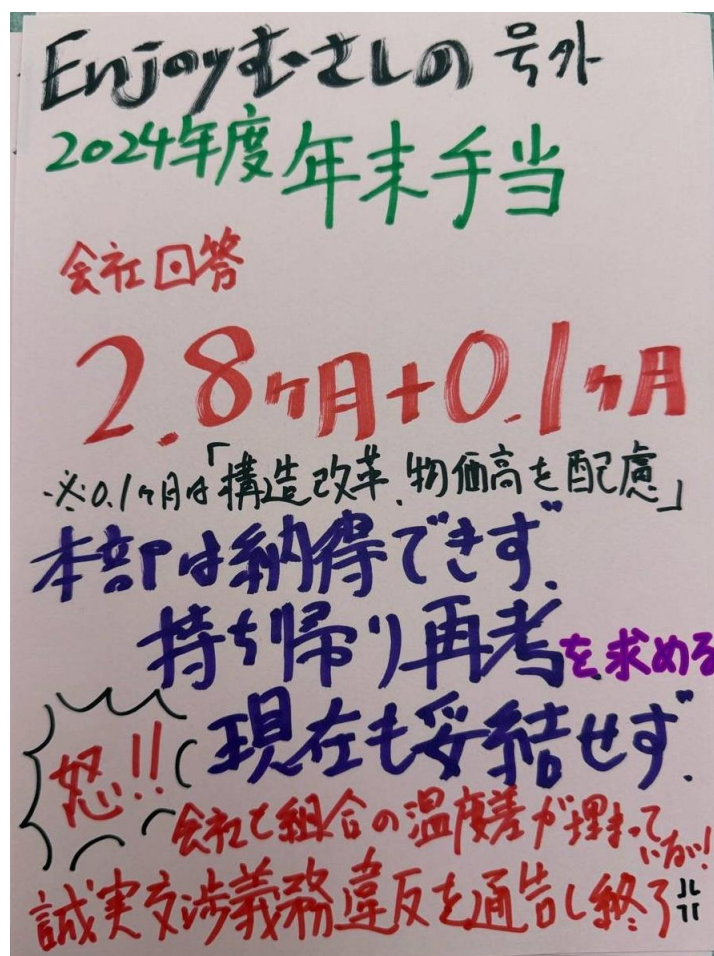 Enjoyむさしの 号外
2024年度 年末手当
会社回答
2.8ヶ月+0.1ヶ月
※0.1ヶ月は「構造改革、物価高を配慮」
本部は納得できず、
持ち帰り再考を求める
現在も妥結せず。
怒!!
会社と組合の温度差が埋まって
いない!
誠実交渉義務違反を通告し終了